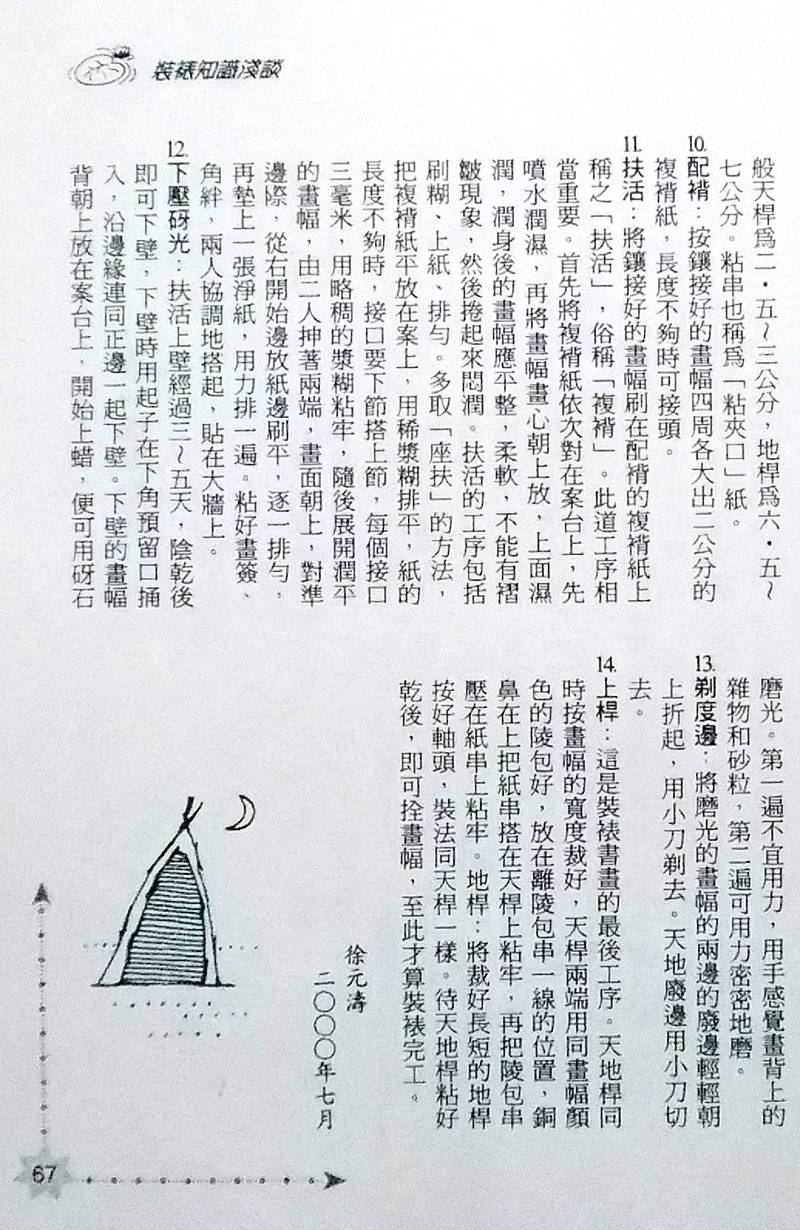 裝裱知識淺談
般天桿爲二·五~三公分，地桿爲六·五~
七公分。粘串也稱爲「粘夾口」紙。
10.配褙：按鑲接好的畫幅四周各大出二公分的
複褙紙，長度不夠時可接頭。
11.扶活：將鑲接好的畫幅刷在配褙的複褙紙上
稱之「扶活」，俗稱「複褙」。此道工序相
當重要。首先將複褙紙依次對在案台上，先
噴水潤濕，再將畫幅畫心朝上放，上面濕
潤，潤身後的畫幅應平整，柔軟，不能有褶
皺現象，然後捲起來悶潤。扶活的工序包括
刷糊、上紙、排勻。多取「座扶」的方法，
把複褙紙平放在案上，用稀漿糊排平，紙的
長度不夠時，接口要下節搭上節，每個接口
三毫米，用略稠的漿糊粘牢，隨後展開潤平
的畫幅，由二人抻著兩端，畫面朝上，對準
邊際，從右開始邊放紙邊刷平，逐一排勻，
再墊上一張淨紙，用力排一遍。粘好畫簽、
角絆，兩人協調地搭起，貼在大牆上。
12.下壓砑光：扶活上壁經過三~五天，陰乾後
即可下壁，下壁時用起子在下角預留口捅
入，沿邊緣連同正邊一起下壁。下壁的畫幅
背朝上放在案台上，開始上蜡，便可用砑石
磨光。第一遍不宜用力，用手感覺畫背上的
雜物和砂粒，第二遍可用力密密地磨。
13.剃度邊：將磨光的畫幅的兩邊的廢邊輕輕朝
上折起，用小刀剃去。天地廢邊用小刀切
去。
14.上桿：這是裝裱書畫的最後工序。天地桿同
時按畫幅的寬度裁好，天桿兩端用同畫幅顏
色的陵包好，放在離陵包串一線的位置，銅
鼻在上把紙串搭在天桿上粘牢，再把陵包串
壓在紙串上粘牢。地桿：將裁好長短的地桿
按好軸頭，裝法同天桿一樣。待天地桿粘好
乾後，即可拴畫幅，至此才算裝裱完工。
徐元濤
二〇〇〇年七月
67